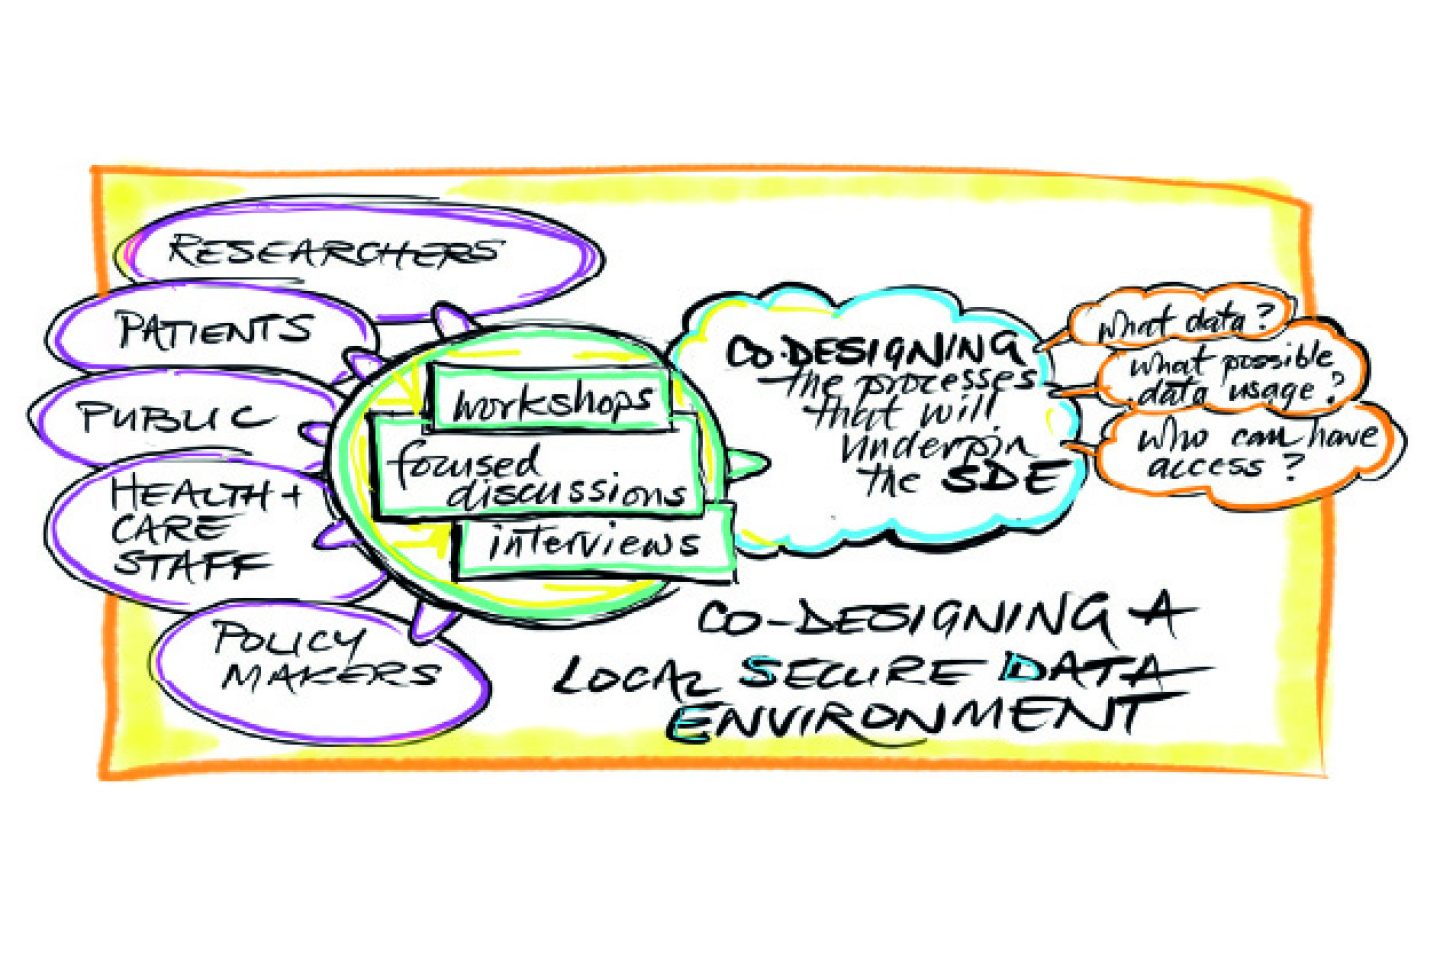 RESEARCHERS
PATIENTS
PUBLIC
HEALTH +
CARE
STAFF
POLICY
MAKERS
workshops
focused
discussions
interviews
CO-DESIGNING
the processes
that will
underpin
the SDE
what data?
what possible
data usage?
who can have
access?
CO-DESIGNING A
LOCAL SECURE DATA
ENVIRONMENT